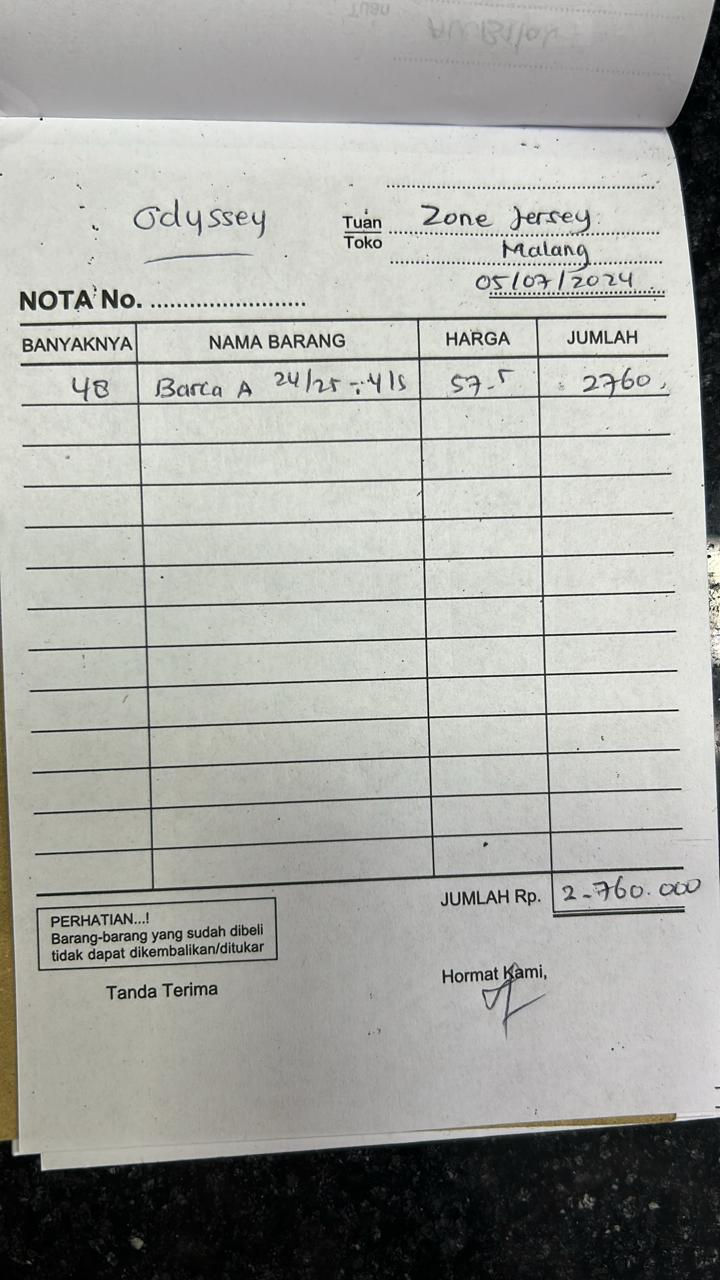 Odyssey
Tuan
Toko
Zone Jersey
Malang
05/07/2024
NOTA No. ..............................
BANYAKNYA NAMA BARANG HARGA JUMLAH
48 Barca A 24/25 -:- 4/s 57.5 2760
JUMLAH Rp. 2.760.000
PERHATIAN...!
Barang-barang yang sudah dibeli
tidak dapat dikembalikan/ditukar
Tanda Terima
Hormat Kami,